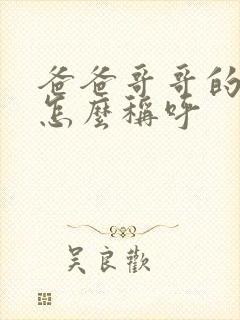 爸爸哥哥的
怎麼稱呼
吴良歡